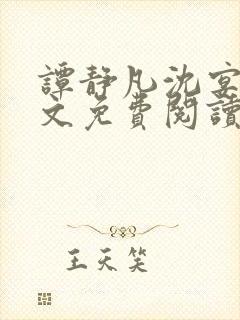 譚靜凡沈宴
文免費閱讀
王天笑